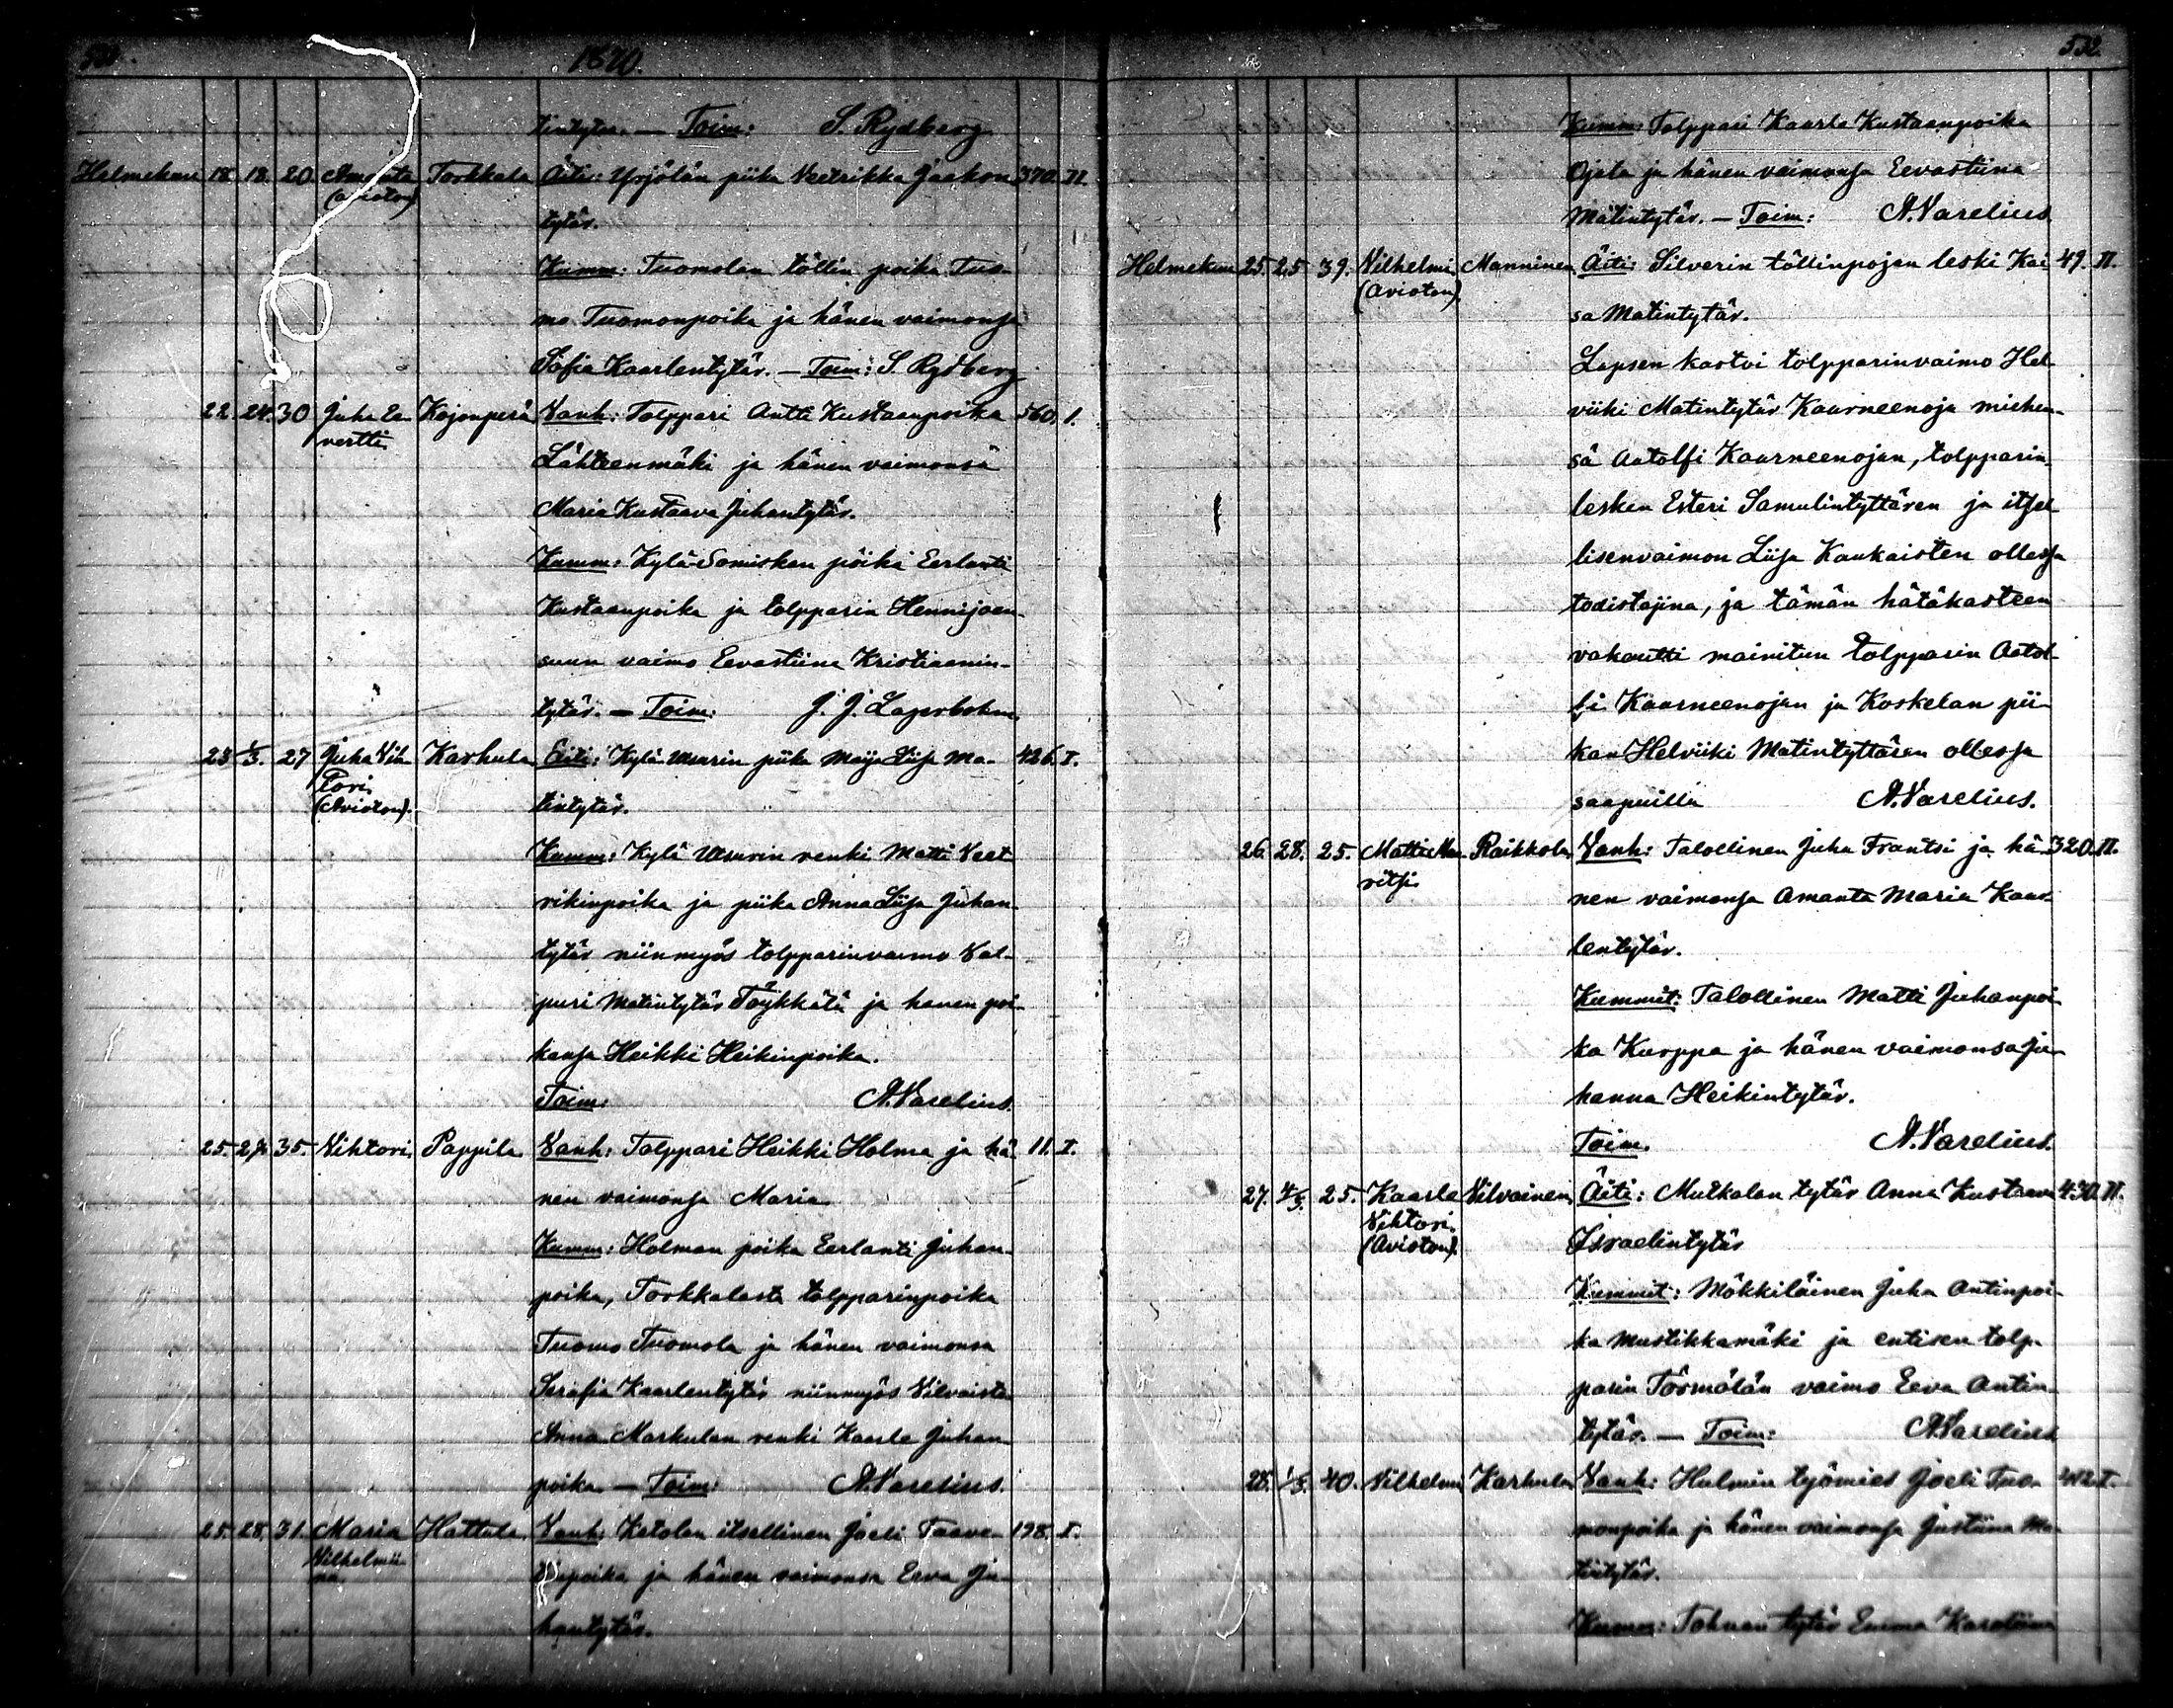 1870.
tintytär. — Toim: S. Rydberg
Helmekuu 18. 18. 20. Amanta Torkkala Äiti: Yrjölän piika Veetrikka Jaakon- 370. II.
(avioton) tytär.
Kumm: Tuomolan töllin poika Tuo-
mo Tuomonpoika ja hänen vaimonsa
Sofia Kaarlentytär. — Toim: S. Rydberg
22. 24. 30 Juha Ee- Kojonperä Vanh: Tolppari Antti Kustaanpoika 560. I.
vertti Lähteenmäki ja hänen vaimonsa
Maria Kustaava Juhantytär.
Kumm: Kylä-Somiskan poika Eerlanti
Kustaanpoika ja tolpparin Hennijoen-
suun vaimo Eevastiina Kristiaanin-
tytär. — Toim: J. J. Lagerbohm
23 1/3. 27 Juha Vih- Karhula Äiti: Kylä-Uusurin piika Maija Liisa Ma- 426. I.
tori tintytär.
(Avioton).
Kumm: Kylä Uusurin renki Matti Veet-
rikinpoika ja piika Anna Liisa Juhan-
tytär niinmyös tolpparinvaimo Val-
puri Matintytär Töykkälä ja hänen poi-
kansa Heikki Heikinpoika.
Toim: A. Varelius.
25. 27. 35. Vihtori Pappila Vanh: Tolppari Heikki Holma ja hä- 11. I.
nen vaimonsa Maria
Kumm: Holman poika Eerlanti Juhan-
poika, Torkkalasta tolpparinpoika
Tuomo Tuomola ja hänen vaimonsa
Serafia Kaarlentytär niinmyös Vilvaista
Anna Markulan renki Kaarle Juhan-
poika — Toim: A. Varelius.
25. 28. 31. Maria Hattula. Vanh: Ketolan itsellinen Joeli Taave- 198. I.
Vilhelmii- poika ja hänen vaimonsa Eeva Ju-
na hantytär.
532.
Kumm: Tolppari Kaarle Kustaanpoika
Ojala ja hänen vaimonsa Eevastiina
Matintytär. — Toim: A. Varelius.
Helmekuu 25. 25 39. Vilhelmi Manninen Äiti: Silverin töllinpojan leski Kai- 49. II.
(Avioton). sa Matintytär.
Lapsen kastoi tolpparinvaimo Hel-
viiki Matintytär Kaarneenoja miehen-
sä Aatolfi Kaarneenojan, tolpparin-
lesken Esteri Samulintyttären ja itsel-
lisenvaimon Liisa Kaukaisten ollessa
todistajina, ja tämän hätäkasteen
vahvutti mainitun tolpparin Aatol-
fi Kaarneenojan ja Koskelan pii-
kan Helviiki Matintyttären ollessa
saapuilla A. Varelius.
26. 28. 25. Matti Mau- Raikkola Vanh: Talollinen Juha Frantsi ja hä- 320. II.
ritsi nen vaimonsa Amanta Maria Kaar-
lentytär.
Kummit: Talollinen Matti Juhanpoi-
ka Kurppa ja hänen vaimonsa Ju-
hanna Heikintytär.
Toim. A. Varelius.
27. 4/3. 25. Kaarle Vilvainen Äiti: Mulkalan tytär Anna Kustaava 430. II.
Vihtori Israelintytär
(Avioton)
Kummit: Mökkiläinen Juha Antinpoi-
ka Mustikkamäki ja entisen tolp-
parin Törmälän vaimo Eeva Antin-
tytär. — Toim: A. Varelius
28. 1/3. 40. Vilhelmi Karhula Vanh: Hulmin työmies Joeli Tuo- 412 I.
monpoika ja hänen vaimonsa Justiina Ma-
tintytär.
Kumm: Tohnan tytär Emma Karoliina